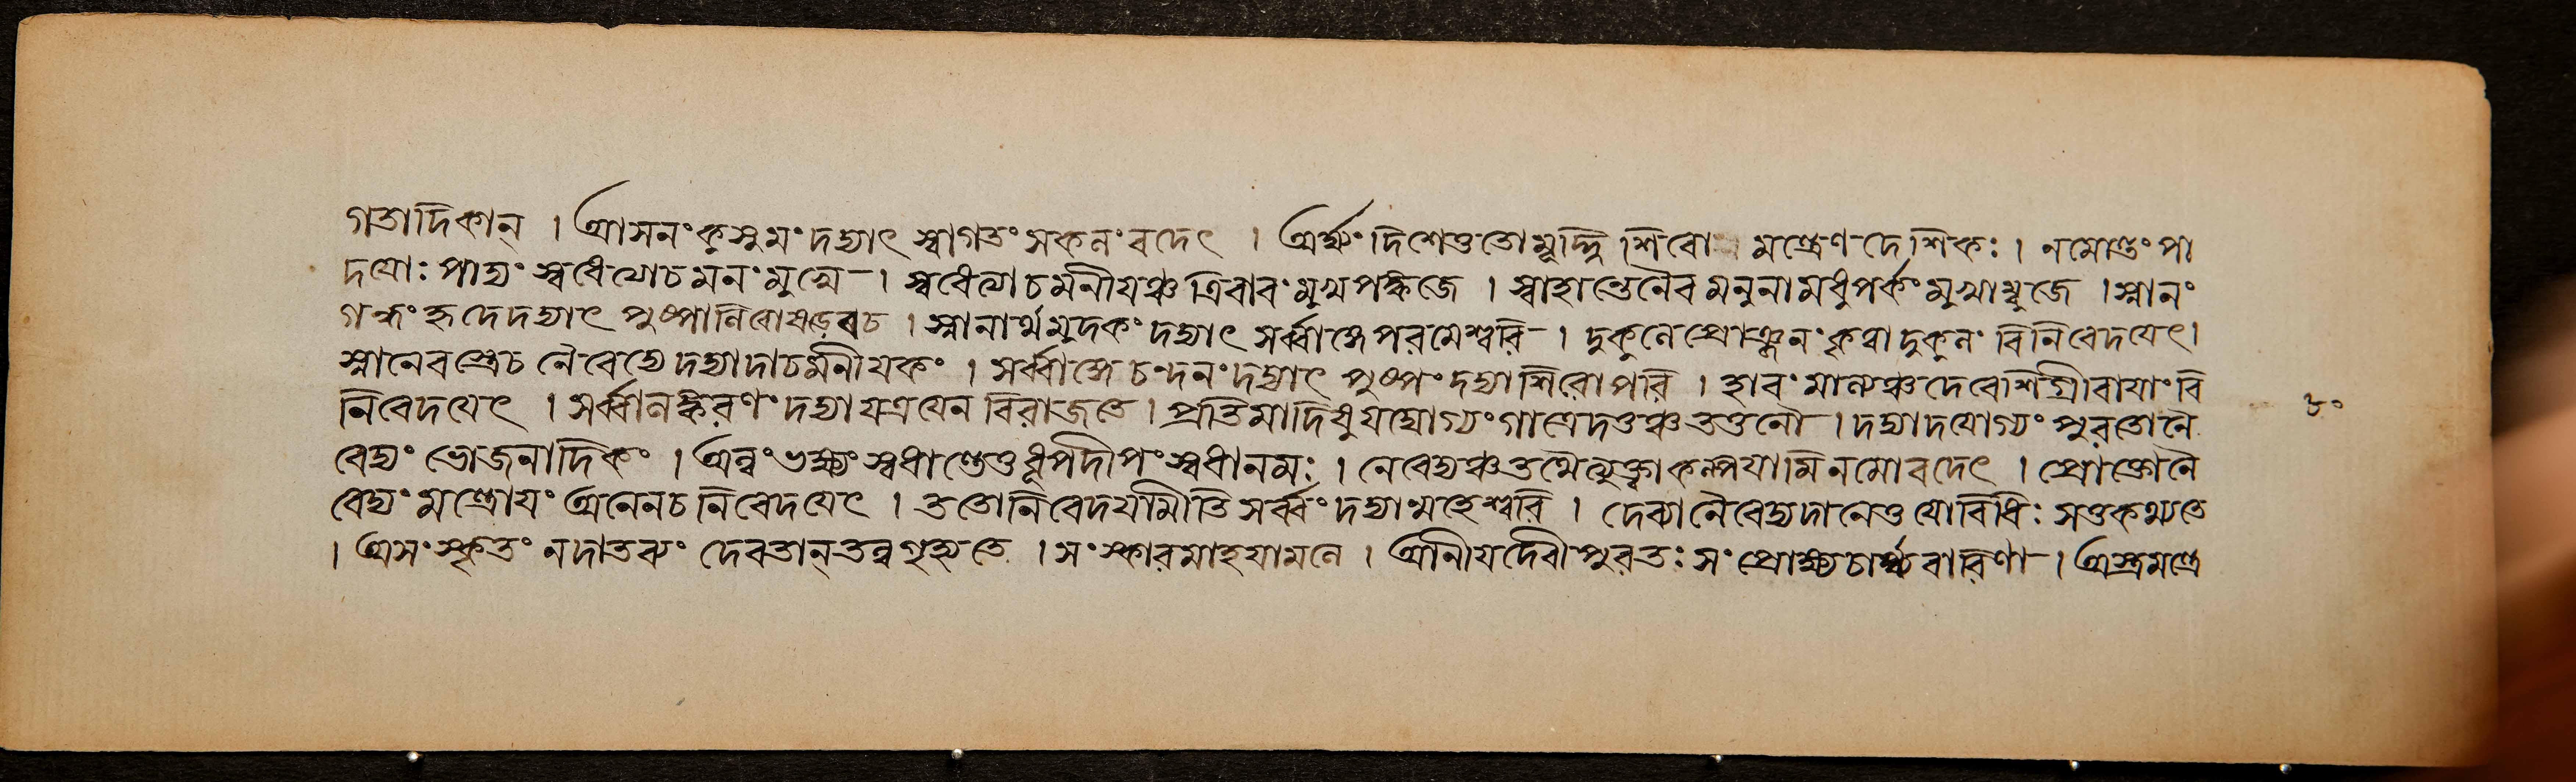 গতাদিকান্ । আসনং কুসুমং দদ্যাৎ স্বাগতং সকলং বদেৎ । অর্ঘ্যং দিশেত্ততো মূর্দ্ধ্নি শিবো মন্ত্রেণ দেশিকঃ । নমোন্তং পা
দয়োঃ পাদ্যং স্বধেত্যাচমনং মুখে । স্বধেত্যাচমনীয়ঞ্চ ত্রিবারং মুখপঙ্কজে । স্বাহান্তেনৈব মনুনা মধুপর্কং মুখাম্বুজে । স্নানং
গন্ধং হৃদে দদ্যাৎ পুষ্পানি চ । স্নানার্থমুদকং দদ্যাৎ সর্ব্বাঙ্গে পরমেশ্বরি । দুকুলে প্রোঞ্ছনং কৃত্বা দুকুলং বিনিবেদয়েৎ ।
স্নানে বস্ত্রে চ নৈবেদ্যে দদ্যাদাচমনীয়কং । সর্ব্বাঙ্গে চন্দনং দদ্যাৎ পুষ্পং দদ্যাশিরোপরি । হারং মাল্যঞ্চ দেবেশি গ্রীবায়াং বি
নিবেদয়েৎ । সর্ব্বালঙ্করণং দদ্যা যত্র যেন বিরাজতে । প্রতিমাদিষু যদ্যোগ্যং গাত্রে দত্তঞ্চ তত্তনৌ । দদ্যাদযোগ্যং পুরতো নৈ
৮০
বেদ্যং ভোজনাদিকং । অন্নং ভক্ষ্যং স্বধান্তেও ধূপদীপং স্বধানমঃ । নেবেদ্যঞ্চ কল্পয়ামি নমো বদেৎ । প্রোক্তো নৈ
বেদ্যং মন্ত্রোয়ং অনেন চ নিবেদয়েৎ । ততো নিবেদয়ামীতি সর্ব্বং দদ্যান্মহেশ্বরি । দেব্যা নৈবেদ্যদানেতু যো বিধিঃ সতু কথ্যতে
। অসংস্কৃতং ন দাতব্যং দেবতান্ তন্ন গৃহ্যতে । সংস্কারমাহ যামলে । আনীয় দেবী পুরতঃ সংপ্রোক্ষ্য চার্ঘ্য বারিণা । অস্ত্রমন্ত্রে